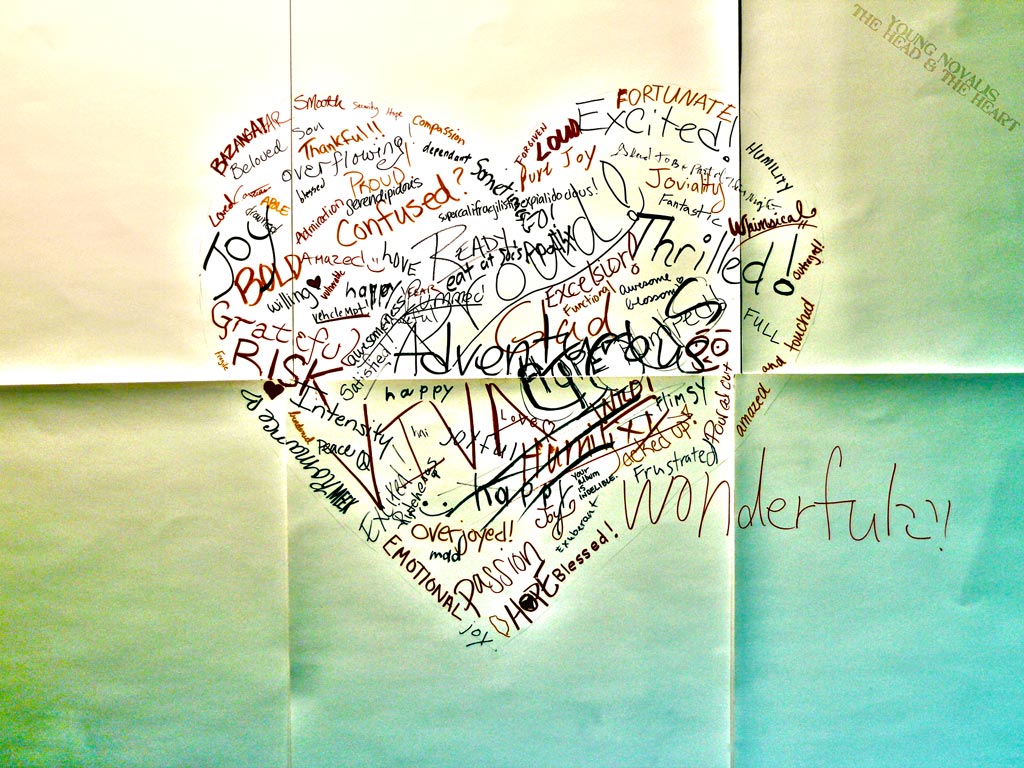 YOUNG NOVALIS
THE HEAD & THE HEART
FORTUNATE
Smooth
Security
Hope
Compassion
BAZANGATAR
Son
Thankful!!
Excited!
Beloved
overflowing!
dependant
FORGIVEN
LOUD
Pure Joy
HUMILITY
blessed
PROUD
serendipidous
Joviality
Fantastic
Loved
ABLE
Admiration
Confused?
supercalifragilisticexpialidocious!
Whimsical
Joy
READY
Proud!
Thrilled!
outraged!!
BOLD
Amazed
LOVE
eat at Joe's
Excelsior!
Functional
awesome
blossom
willing
happy
FEAR
vehclemot
Grateful
awesomeness
God
FULL
and touched
amazed
Adventurous
RISK
Satisfied
Fragile
happy
WILD!
Flimsy
Poured out
Romance
Intensity
hai
Love
Joyful
Humility
Jacked up!
Peace
Frustrated
MEEK
happy
YOUR
ALBUM
IS
INDELIBLE.
Joy
wonderful!!
Overjoyed!
mad
Exuberant
EMOTIONAL
Passion
Blessed!!
HOPE
Joy